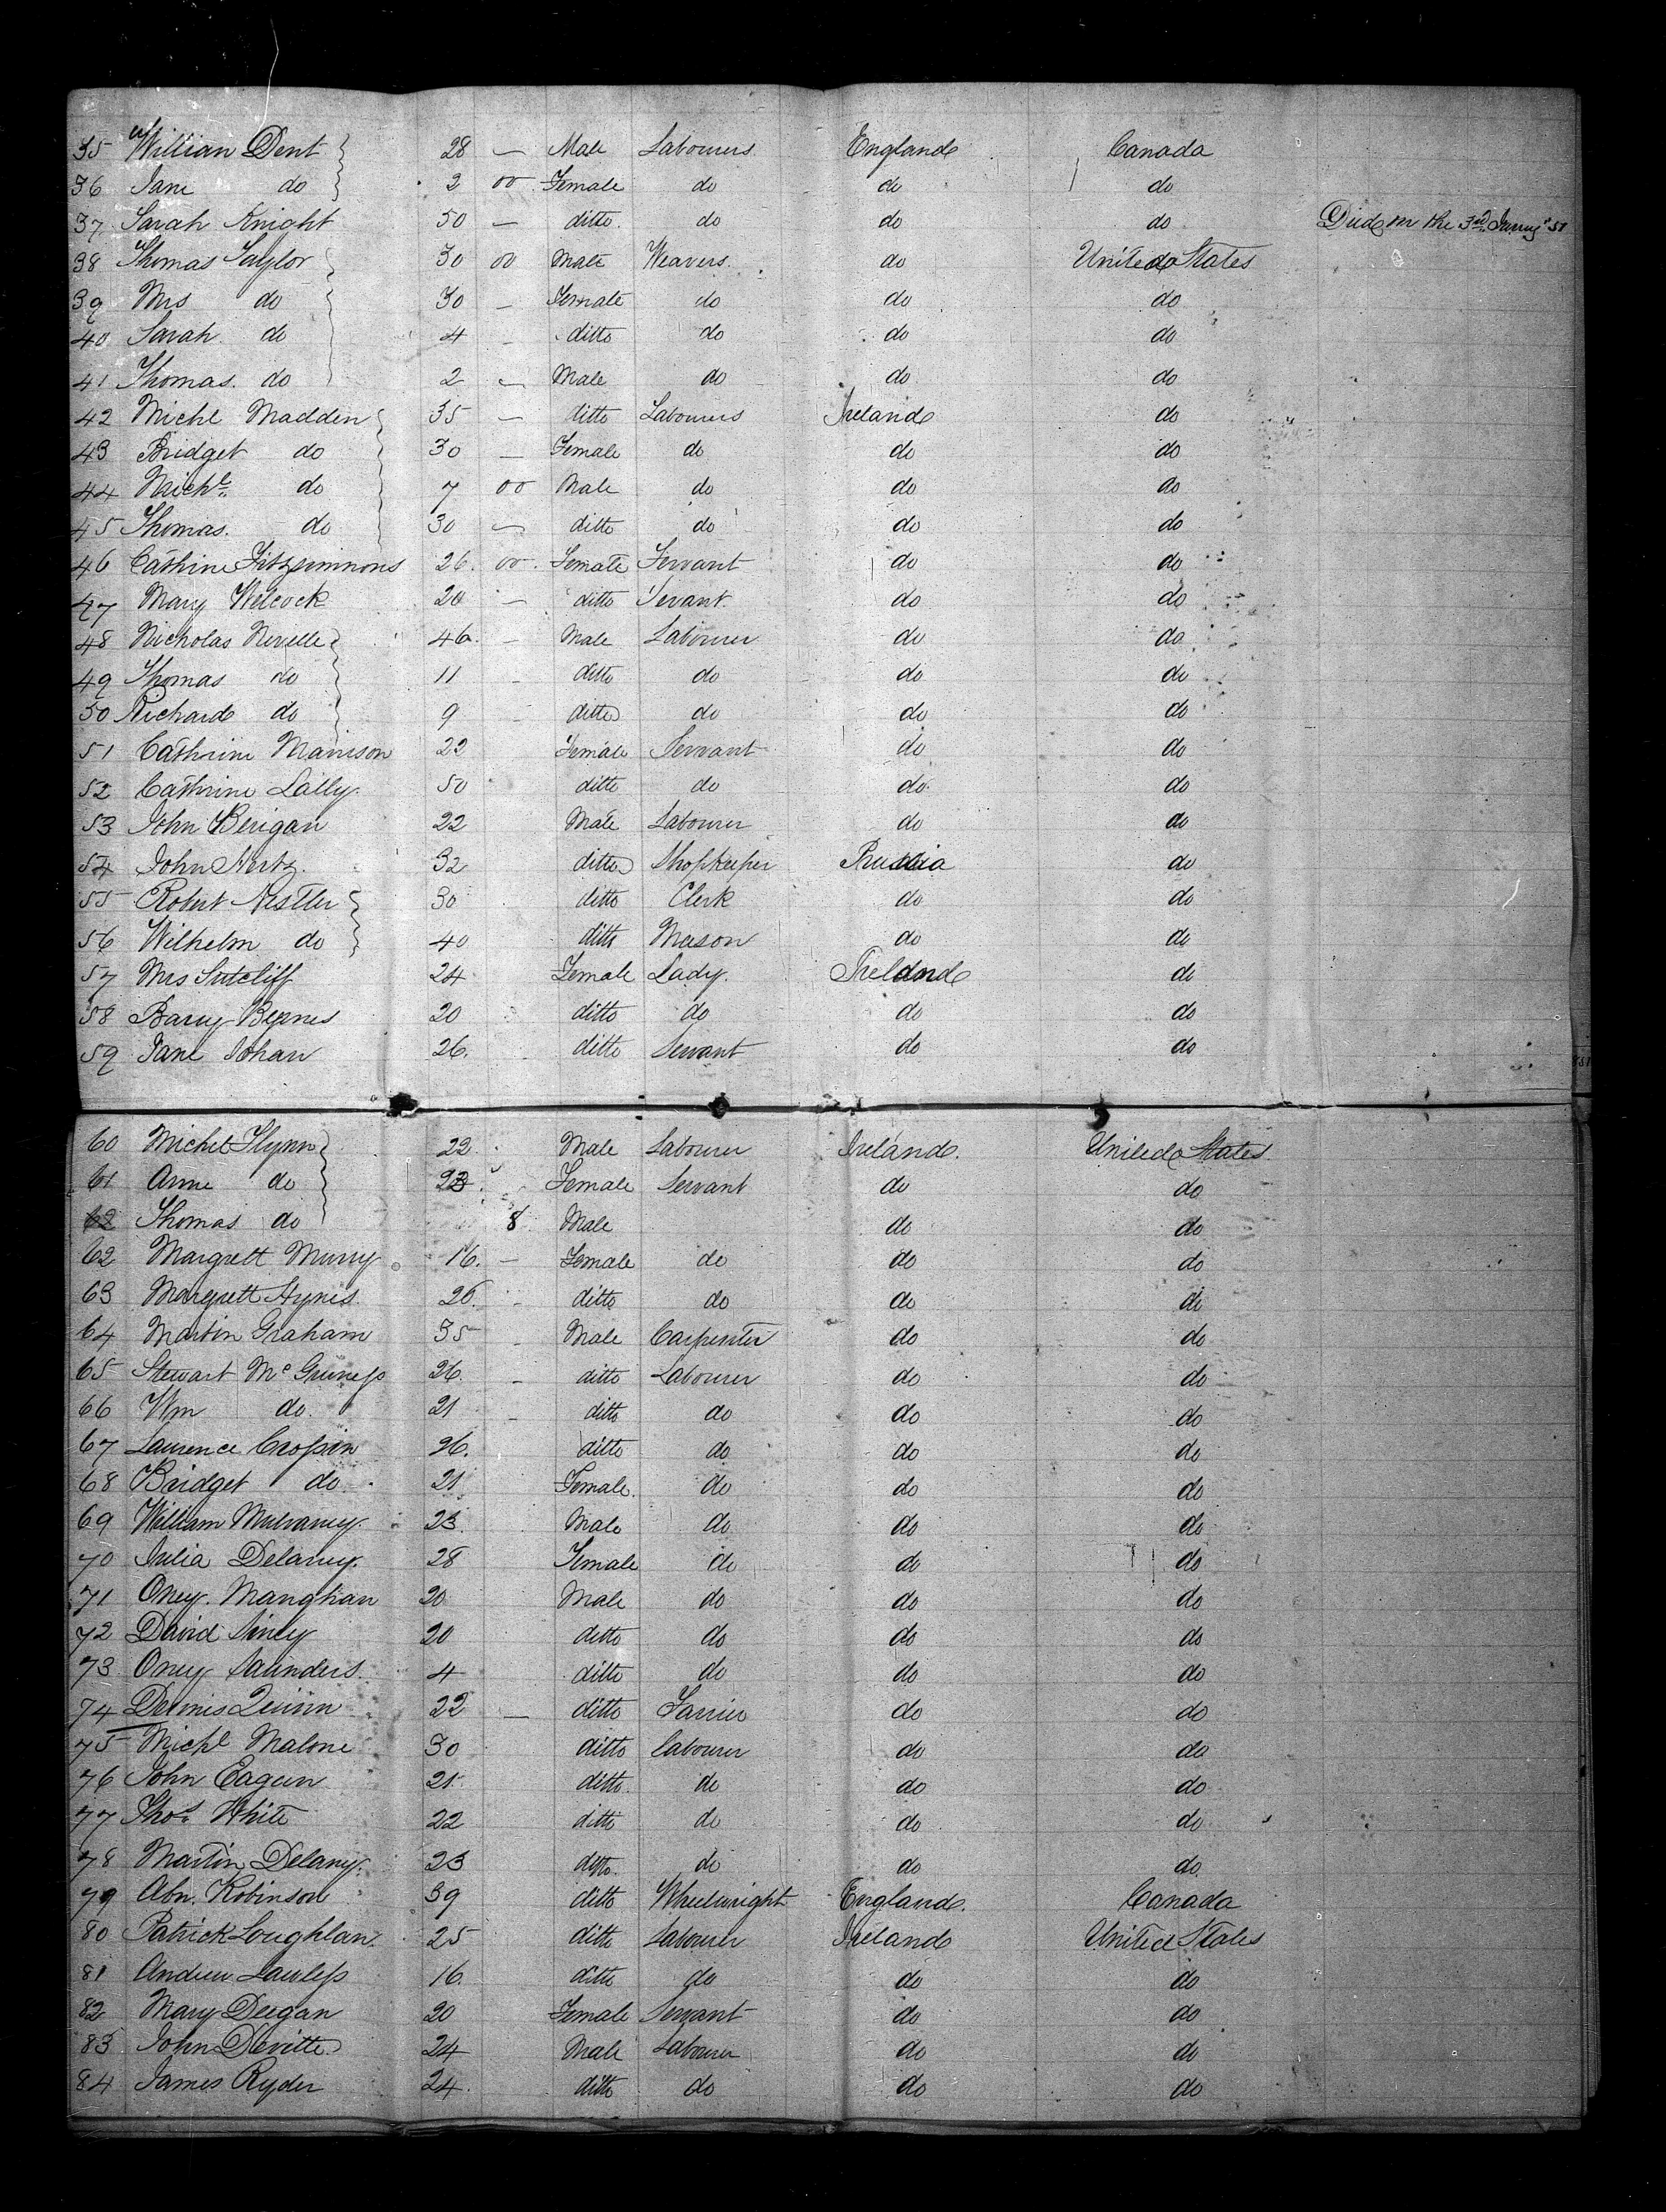 35 William Dent 28 — Male Labourers England Canada
36 Jane do 2 00 Female do do do
37 Sarah Knight 50 — ditto do do do Died on the 3rd 51
38 Thomas Taylor 30 00 Male Weavers do United States
39 Mrs do 30 — Female do do do
40 Sarah do 4 - ditto do do do
41 Thomas do 2 — Male do do do
42 Michl Madden 35 — ditto Labourers Ireland do
43 Bridget do 30 — Female do do do
44 Michl do 7 00 Male do do do
45 Thomas do 30 — ditto do do do
46 Cathrine Fitzsimmons 26 00 Female Servant do do
47 Mary Welcock 20 — ditto Servant do do
48 Nicholas Nevelle 40 - Male Labourer do do
49 Thomas do 11 - ditto do do do
50 Richard do 9 - ditto do do do
51 Cathrine Manison 22 Female Servant do do
52 Cathrine Lally 50 ditto do do do
53 John Berigan 22 Male Labourer do do
54 John 32 ditto Shopkeeper Prussia do
55 Robert Nestler 30 ditto Clerk do do
56 Wilhelm do 40 ditto Mason do do
57 Mrs Sutcliff 24 Female Lady Ireland do
58 Barry Beynes 20 ditto do do do
59 Jane Sohan 26 ditto Servant do do
60 Michel Flynn 22 Male Labourer Ireland United States
61 Anne do 23 Female Servant do do
62 Thomas do 8 Male do do
62 Margrett Murry 16 — Female do do do
63 Margrett Hynes 26 - ditto do do do
64 Martin Graham 35 - Male Carpenter do do
65 Stewart McGuness 26 - ditto Labourer do do
66 Wm do 21 - ditto do do do
67 Laurence Crossin 26 ditto do do do
68 Bridget do 21 Female do do do
69 William Mulvaney 23 Male do do do
70 Julia Delaney 28 Female do do do
71 Oney Manghan 20 Male do do do
72 David Sinley 20 ditto do do do
73 Oney Saunders 4 ditto do do do
74 Dennis Quinn 22 — ditto Farrier do do
75 Michl Malone 30 ditto labourer do do
76 John Eagan 21 ditto do do do
77 Thos White 22 ditto do do do
78 Martin Delany 23 ditto do do do
79 Abn Robinson 39 ditto Wheelwright England Canada
80 Patrick Loughlan 25 ditto Labourer Ireland United States
81 Andrew Lawless 16 ditto do do do
82 Mary Deegan 20 Female Servant do do
83 John Devitte 24 Male Labourer do do
84 James Ryder 24 ditto do do do